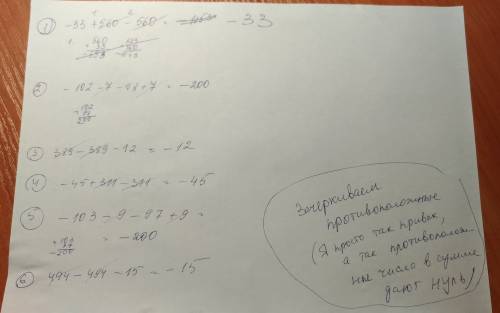 ① -33 + 560 - 560 = -33
② -102 - 7 - 98 + 7 = -200
③ 389 - 389 - 12 = -12
④ -45 + 311 - 311 = -45
⑤ -103 - 9 - 97 + 9 =
= -200
⑥ 494 - 494 - 15 = -15
Зачеркиваем
противоположные
(Я просто так привык,
а так противополож-
ные числа в сумме
дают нуль)